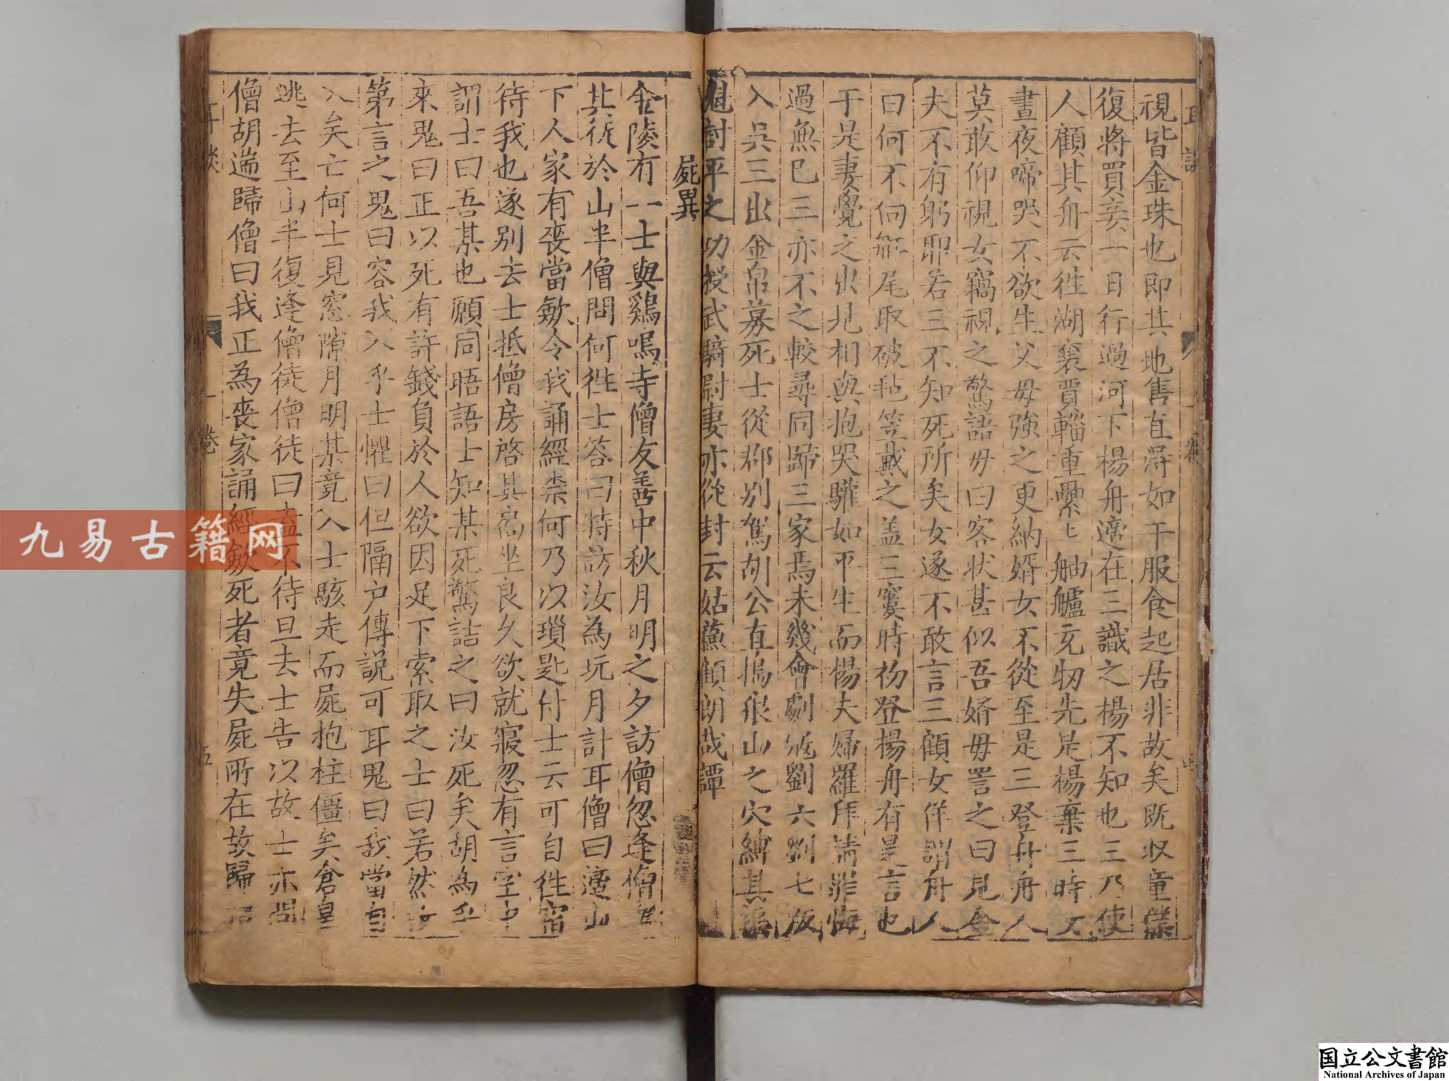 視皆金珠也即其地售直得如干服食起居非故矣既收童僕
復將買妾一日行過河下楊舟適在三識之楊不知也三乃使
人顧其舟云往湖襄賈輜重纍七舳艫充牣先是楊棄三時女
晝夜啼哭不欲生父母強之更納婿女不從至是三登舟舟人
莫敢仰視女竊視之驚語母曰客狀甚似吾婿母詈之曰見金
夫不有躬耶若三不知死所矣女遂不敢言三顧女佯謂舟人
曰何不向舵尾取破氊笠戴之盖三窶時初登楊舟有是言也
于是妻覺之出見相與抱哭驩如平生而楊夫婦羅拜請罪悔
過無已三亦不之較尋同歸三家焉未幾會劇寇劉六劉七叛
入吳三出金帛募死士從郡別駕胡公直搗狼山之穴縛其
魁討平之功授武騎尉妻亦從封云姑蘇顧朗哉譚
屍異
金陵有一士與鷄鳴寺僧友善中秋月明之夕訪僧忽逢僧
其徒於山半僧問何徃士答曰特訪汝為玩月計耳僧曰適山
下人家有喪當斂令我誦經柰何乃以鎖匙付士云可自徃宿
待我也遂別去士抵僧房啓其扃坐良久欲就寢忽有言至者
謂士曰吾某也願同晤語士知某死驚詰之曰汝死矣胡為乎
來鬼曰正以死有許錢負於人欲因足下索取之士曰若然汝
第言之鬼曰容我入乎士懼曰但隔戶傳説可耳鬼曰我當自
入矣亡何士見窓隙月明某竟入士駭走而屍抱柱僵矣倉皇
逃去至山半復逢僧徒僧徒曰不待旦去士告以故士亦
僧胡遄歸僧曰我正為喪家誦經斂死者竟失屍所在故歸
卷
五
九易古籍网
国立公文書館
National Archives of Japan